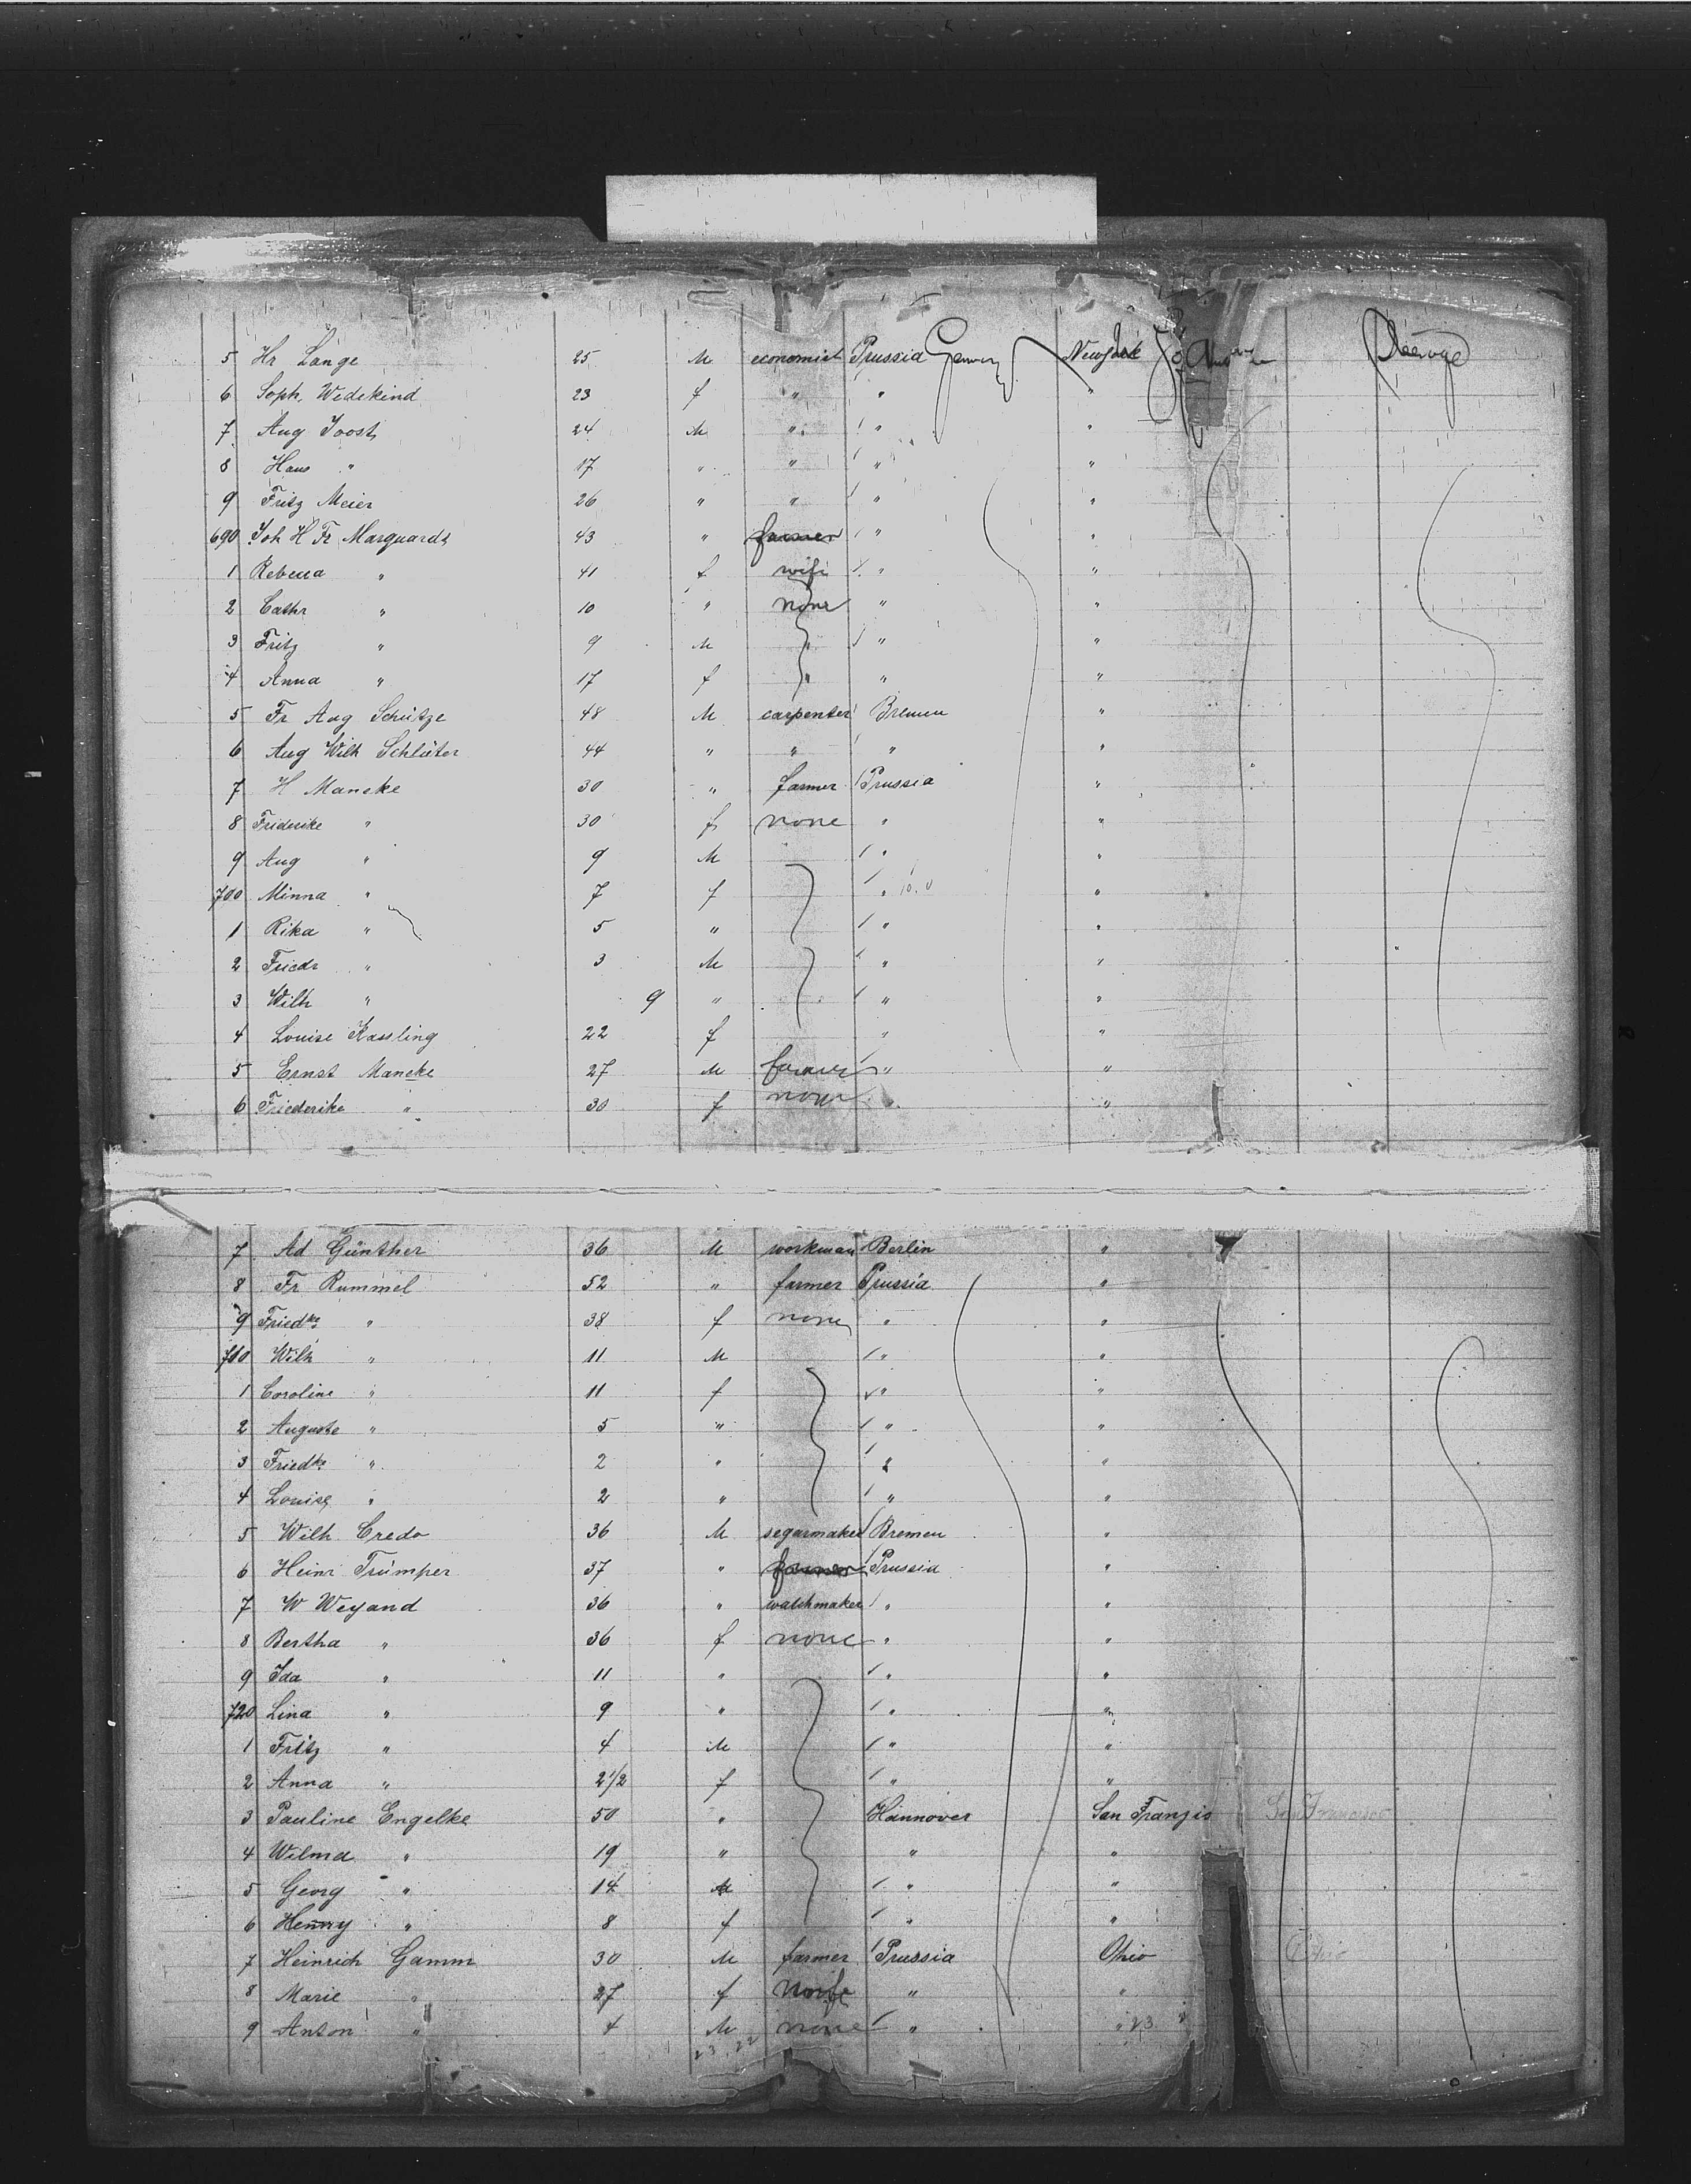 5 Hr Lange 25 M economist Prussia Germany New York Steerage
6 Soph. Wedekind 23 f " " "
7 Aug Joost 24 M " " "
8 Hans " 17 " " " "
9 Fritz Meier 26 " " " "
690 Joh H Fr Marquardt 43 " farmer " "
1 Rebecca " 41 f wife " "
2 Cathr " 10 " none " "
3 Fritz " 9 M " " "
4 Anna " 17 f " " "
5 Fr Aug Schütze 48 M carpenter Bremen "
6 Aug Wilh Schlüter 44 " " " "
7 H Mancke 30 " farmer Prussia "
8 Friderike " 30 f none " "
9 Aug " 9 M " "
700 Minna " 7 f " "
1 Rika " 5 " " "
2 Friedr " 3 M " "
3 Wilh " 9 " " "
4 Louise Kassling 22 f " "
5 Ernst Mancke 27 M farmer " "
6 Friederike " 30 f none " "
7 Ad Günther 36 M workman Berlin "
8 Fr Rummel 52 " farmer Prussia "
9 Friedke " 38 f none " "
710 Wilh " 11 M " "
1 Coroline " 11 f " "
2 Auguste " 5 " " "
3 Friedke " 2 " " "
4 Louise " 2 " " "
5 Wilh Credo 36 M segarmaker Bremen "
6 Heinr Trümper 37 " farmer Prussia "
7 W Weyand 36 " watchmaker " "
8 Bertha " 36 f none " "
9 Ida " 11 " " "
720 Lina " 9 " " "
1 Fritz " 4 M " "
2 Anna " 2 1/2 f " "
3 Pauline Engelke 50 " Hannover San Franzis San Francisco
4 Wilma " 19 " " "
5 Georg " 14 M " "
6 Henny " 8 f " "
7 Heinrich Gamm 30 M farmer Prussia Ohio Ohio
8 Marie " 27 f wife " "
9 Anton " 4 M none " "
23 22